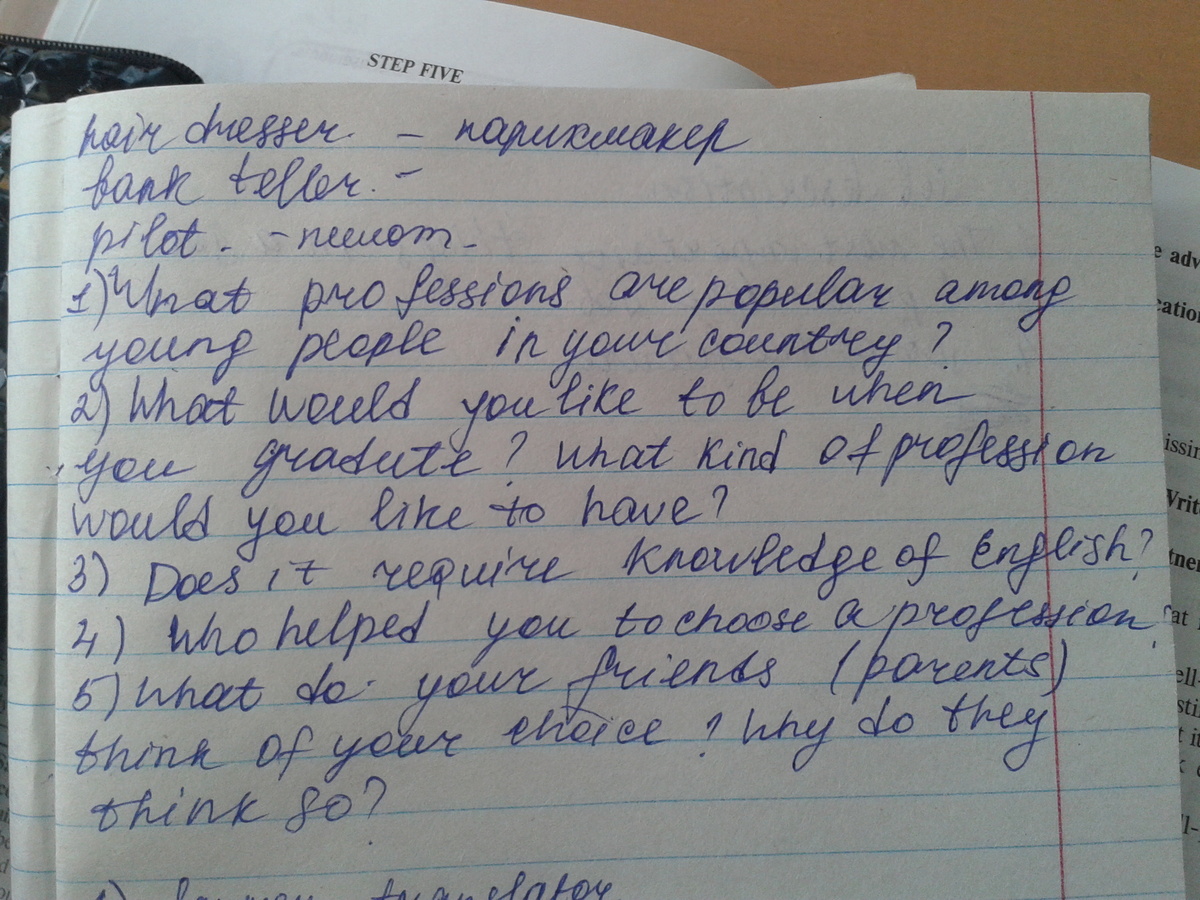 STEP FIVE
hair dresser. - парикмахер
bank teller. -
pilot. - пилот.
1) What professions are popular among
young people in your country?
2) What would you like to be when
you gradute? What kind of profession
would you like to have?
3) Does it require knowledge of English?
4) Who helped you to choose a profession
5) What do your friends (parents)
think of your choice? Why do they
think so?
translator